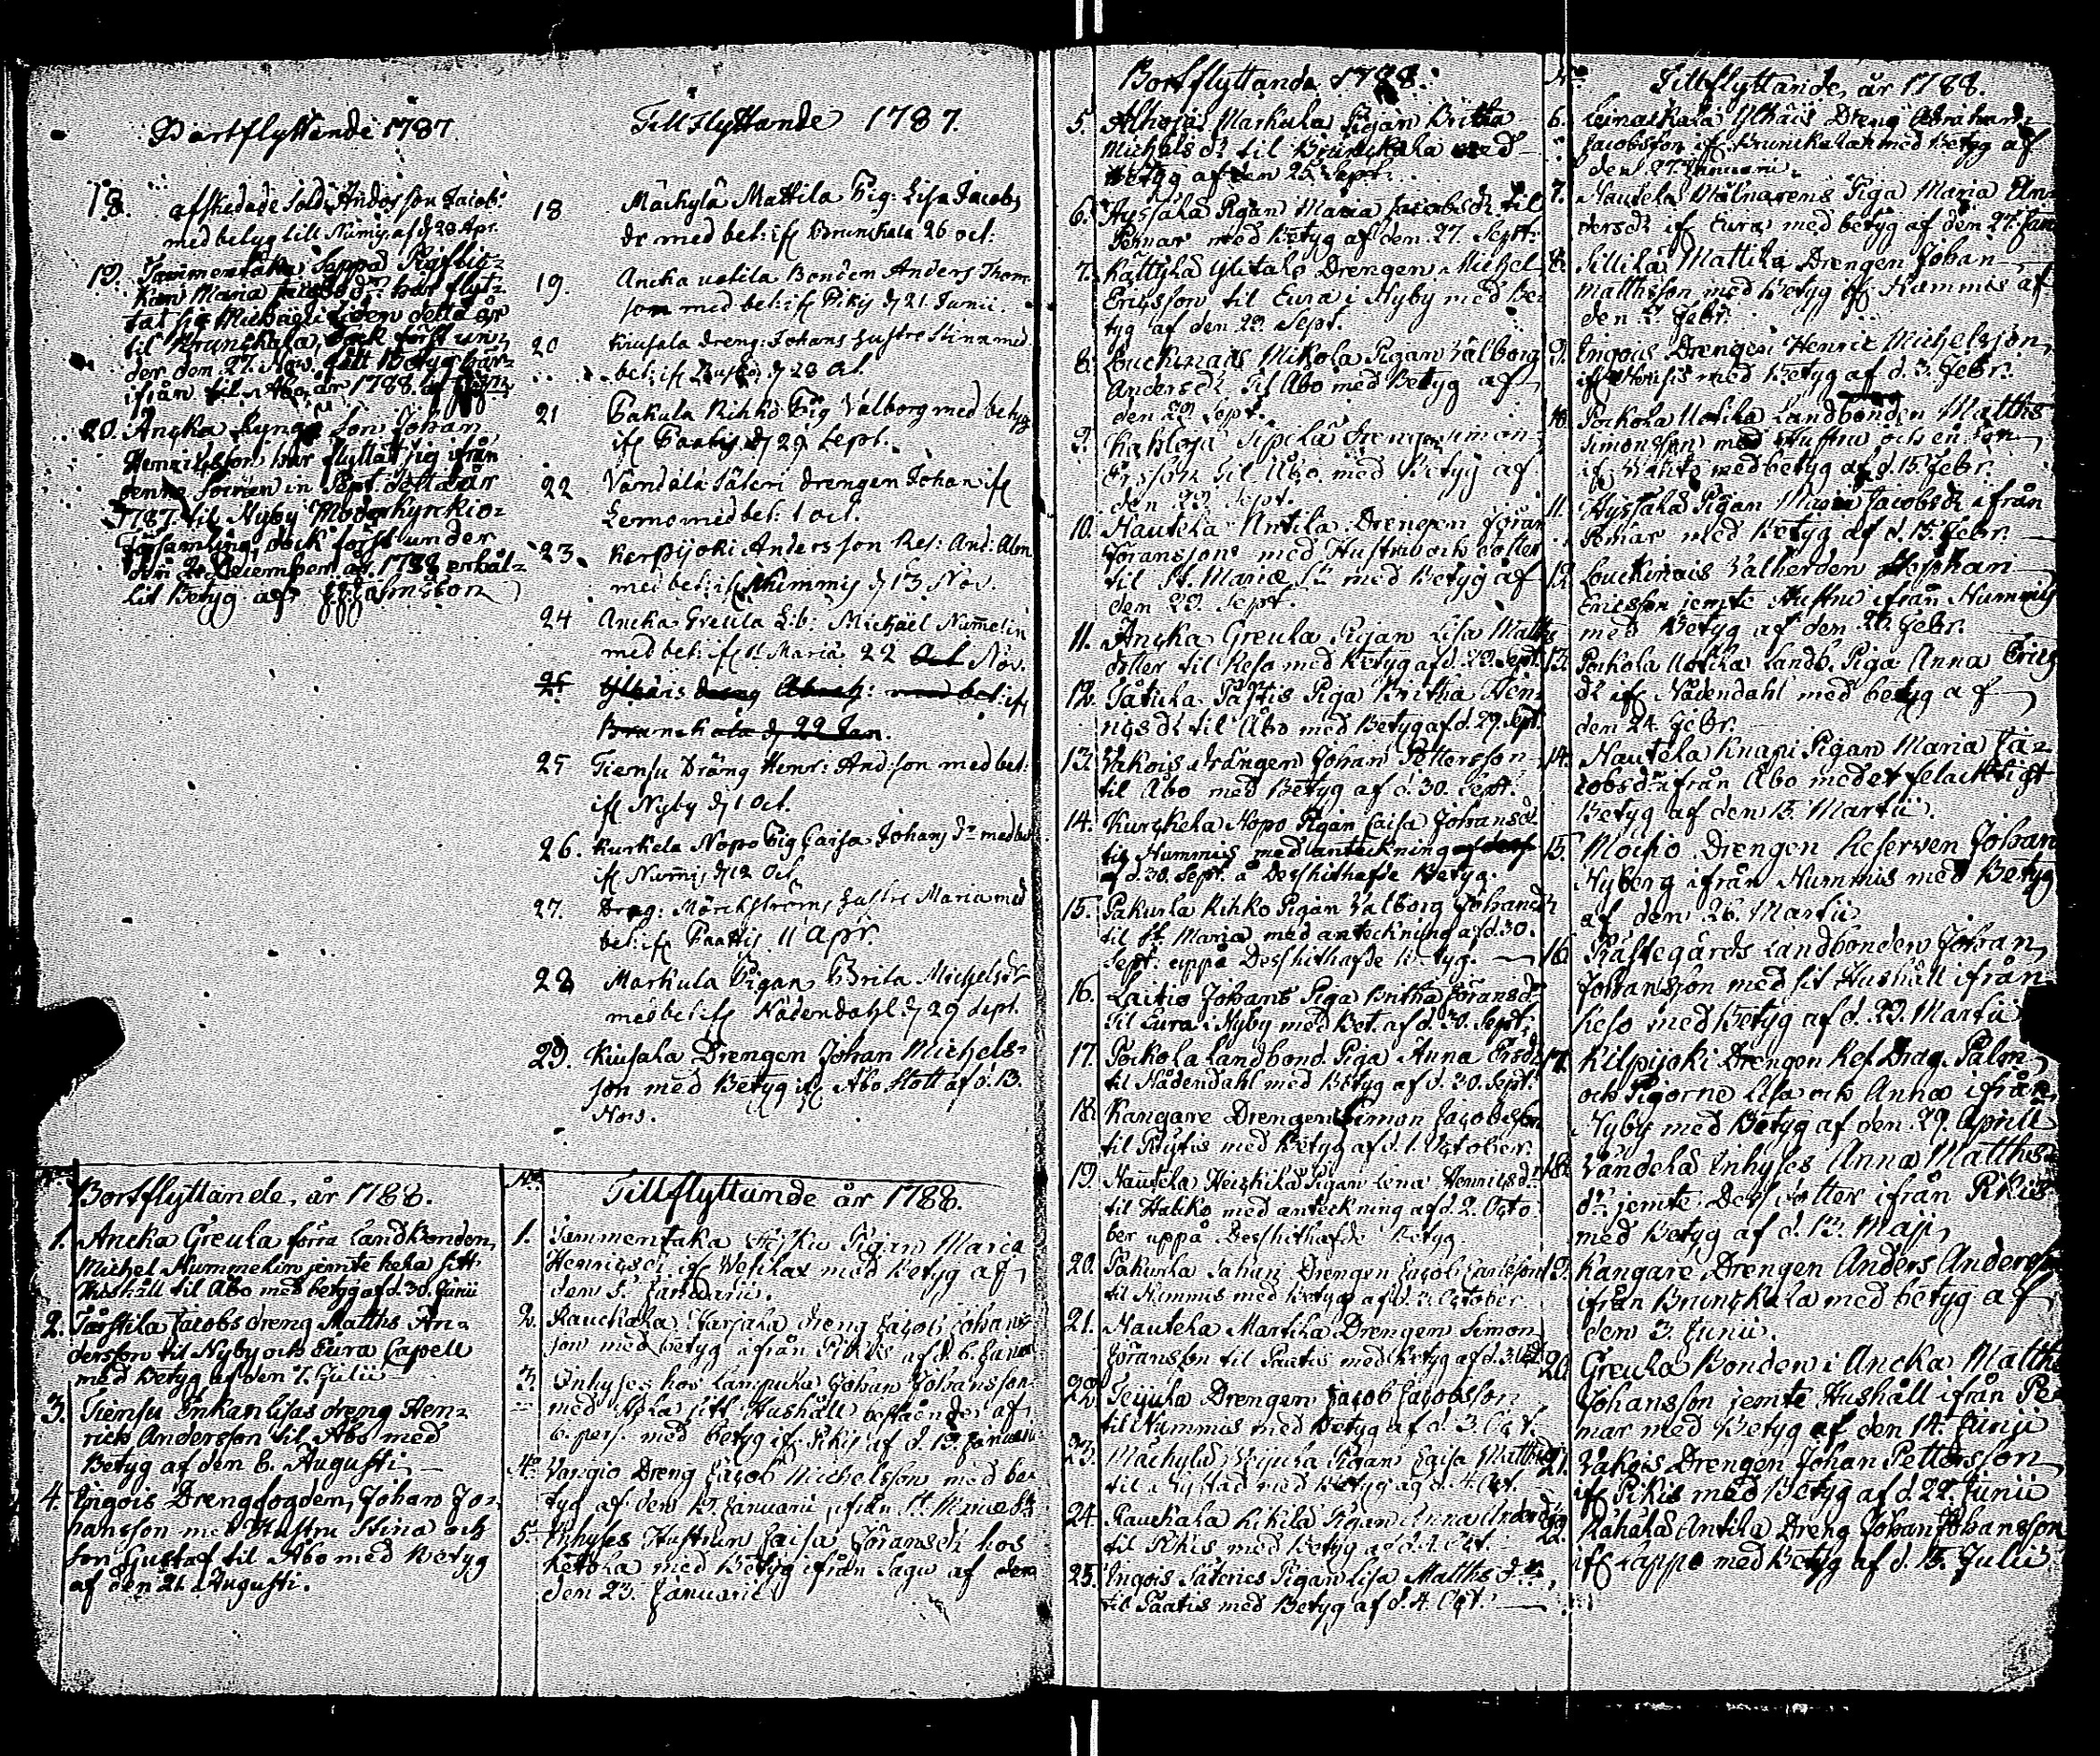 Bortflyttande 1787
18. afskedade Sold: Anders son Jacob:
med betyg till Numis. af d 28 Apr.
19. Tammentaka Seppä
Maria Jacobsd: har flyt-
tat sig Michaeli tiden detta år
til Brunskala, dock först un-
der den 27. Nov. fått Betyg här-
ifrån til Abo, år 1788.
20. Ancka Son Johan
Henricsson har flyttat sig ifrån
denne Socken in Sept. detta år
1787. til Nyby Moderkyrkio-
församling, dock först under
den 2. December år 1788 erhål-
lit Betyg af
Tillflyttande 1787.
18 Mäckylä Mattila Pig: Lisa Jacobs
dr med bet: ifr Brunskala 26 oct:
19. Ancka uotila Bonden Anders Thom
son med bet: ifr Pikis d 21 Junii.
20 Kiusala dreng: Johans hustru Stina med
bet: ifr d 28 Oct.
21 Pakula Rihko Pig Valborg med betyg
ifr Paatis d 29 Sept.
22 Vändälä Säteri drengen Johan ifr
Lemo med bet: 1 oct.
23. Kerpijoki Andersson Ref: And: Alm
med bet: ifr Nummis d 13 Nov.
24 Ancka Greula Lib: Michäel Num̄elin
med bet: ifr St Mariä 22 Oct Nov.
25 Ylhäis dreng Abrah: med bet: ifr
Brunskala d 22 Jan.
25 Tiensu Dräng Henr: And:son med bet:
ifr Nyby d 1 Oct.
26. Kurkela Nopo Pig Caisa Johans dr med bet
ifr Num̄is d 12 Oct.
27. Drag: Mörckströms hustru Maria med
bet: ifr Paattis 11 Apr.
28 Markula Pigan Brita Michelsdr
med bet: ifr Nådendahl d 29 sept.
29. Kiusala Drengen Johan Michels-
son med Betyg ifr Abo Slott af d. 13.
Nov.
Bortflyttande, år 1788.
1. Ancka Greula förra Landbonden
Michel Nummelin jemte hela sitt
Hushåll til Abo med betyg af d. 30. Junii
2. Tarstila Jacobs dreng Matths An-
dersson til Nyby och Eura Capell
med Betyg af den 7. Julii
3. Tiensu Enkan Lisas dreng Hen-
rick Andersson til Abo med
Betyg af den 6. Augusti
4. Engois Drengfogden, Johan Jo-
hansson med Hustru Stina och
son Gustaf til Abo med Betyg
af den 21. Augusti.
No. Tillflyttande år 1788.
1. Tammentaka Pigan Maria
Henricsdr ifr Wesilax med Betyg af
den 5. Januarii.
2. Rauckala Tarjala dreng Jacob Johans-
son med betyg ifrån Pikis af d. 6. Januar
3. Inhyses hos Lampula Johan Johansson
med hela sitt Hushåll bestående af
6. pers. med betyg ifr Pikis af d. 19. Januarii
4. Vargio Dreng Jacob Michelsson med be-
tyg af den 19. Januarii, ifrån St. Mariæ Sn
5. Inhyses Hustrun Caisa Jöransdr hos
Ketola med Betyg ifrån Sagu af den
den 23. Januarii
Bortflyttande 1788.
5. Alhojas Markula Pigan Britha
Michelsdr til Brunskala med
Betyg af den 25. Sept.
6. Hyssälä Pigan Maria Jacobsdr til
Pemar med Betyg af den 27. Sept:
7. Kättylä Ylitalo Drengen Michel
Ericsson til Eura i Nyby med Be-
tyg af den 29. Sept.
8. Louckinais Mikola Pigan Valborg
Andersdr til Abo med Betyg af
den 29. Sept.
9. Sipilä Drengen Simon
Ersson til Åbo med Betyg af
den 29. Sept.
10. Nautela Antila Drengen Jöran
Jöransson med Hustru och dotter
til St. Mariæ Sn med Betyg af
den 29. Sept.
11. Ancka Greula Pigan Lisa Matths
dotter til Reso med Betyg af d. 29. Sept.
12. Tätilä Piga Britha Hen-
ricsdr til Åbo med Betyg af d. 29. Sept.
13. Vakois drängen Johan Pettersson
til Åbo med Betyg af d. 30. Sept.
14. Kurckela Nopo Pigan Caisa Johansdr
til Nummis med anteckning
af d. 30. Sept. å Dess hithafde Betyg.
15. Pakurla Rihko Pigan Valborg Johansdr
til St. Mariæ med anteckning af d. 30.
Sept. uppå Dess hithafde Betyg.
16. Laitio Johans Piga Britha Jöransdr
til Eura i Nyby med Bet. af d. 30. Sept.
17. Pockola Landbond. Piga Anna Ersdr
til Nådendahl med Betyg af d. 30. Sept.
18. Kangare Drengen Simon Jacobsson
til Rytis med Betyg af d. 1. October.
19. Nautela Heickilä Pigan Lena Henricsdr
til Halicko med anteckning af d. 2. Octo
ber uppå Dess hithafde Betyg.
20. Pakurla Sahari Drengen Jacob Carlsson
til Nummis med Betyg af d. 3. October
21. Nautela Martila Drengen Simon
Jöransson til Paatis med Betyg af d. 3. Oct.
22. Teijula Drengen Jacob Jacobsson
til Nummis med Betyg af d. 3. Oct.
23. Mäckylä Pigan Caisa Matthsdr
til Nystad med Betyg af d. 4. Oct.
24. Rauckala Kikilä Pigan Anna Andersdr
til Pikis med Betyg af d. 4. Oct.
25. Engois Säteries Pigan Lisa Matths dr
til Paatis med Betyg af d. 4. Oct.
No. Tillflyttande, år 1788.
6. Leinackala Ylhäis Dreng Abraham
Jacobsson ifr Brunckala med Betyg af
den 27. Januarii.
7. Nautela Mölnarens Piga Maria An-
dersdr ifr Eura med betyg af den 27. Jan
8. Sillilä Mattila Drengen Johan
Matthsson med Betyg ifr Nummis af
den Febr.
9. Engois Drengen Henric Michelsson
ifr Nousis med Betyg af d. 3. Febr.
10. Pockola Uotila Landbonden Matths
Simonsson med Hustru och en son
ifr Vahto med betyg af d. 15. Febr.
11. Hyssälä Pigan Maria Jacobsdr ifrån
Pemar med Betyg af d. 15. Febr.
12. Louckinais Valherden Stephan
Ericsson jemte Hustru ifrån Nummis
med Betyg af den 20. Febr.
13. Pockola Uotila Landb. Piga Anna Erics
dr ifr Nådendahl med betyg af
den 24. Febr.
14. Nautela Knapi Pigan Maria Ja-
cobsdr ifrån Abo med et felacktigt
Betyg af den 13. Martii.
15. Moisio Drengen Reserven Johan
Nyberg ifrån Nummis med Betyg
af den 26. Martii
16. Prästegårds Landbonden Johan
Johansson med sit Hushåll ifrån
Reso med Betyg af d. 29. Martii
17. Kilpijoki Drengen Ref. Drag. Palm
och Pigorne Lisa och Anna ifrån
Nyby med Betyg af den 29. Aprill
18. Vändelä Inhyses Anna Matths-
dr jemte Dess dotter ifrån Pikis
med Betyg af d. 13. Maji
19. Kangare Drengen Anders Andersson
ifrån Brunckala med betyg af
den 3. Junii.
20. Greula Bonden i Ancka Matths
Johansson jemte Hushåll ifrån Pe-
mar med Betyg af den 14. Junii
21. Vakois Drengen Johan Pettersson
ifr Pikis med Betyg af d. 22. Junii
22. Rähälä Antila Dreng Johan Johansson
ifr Lappo med Betyg af d. 15. Julii